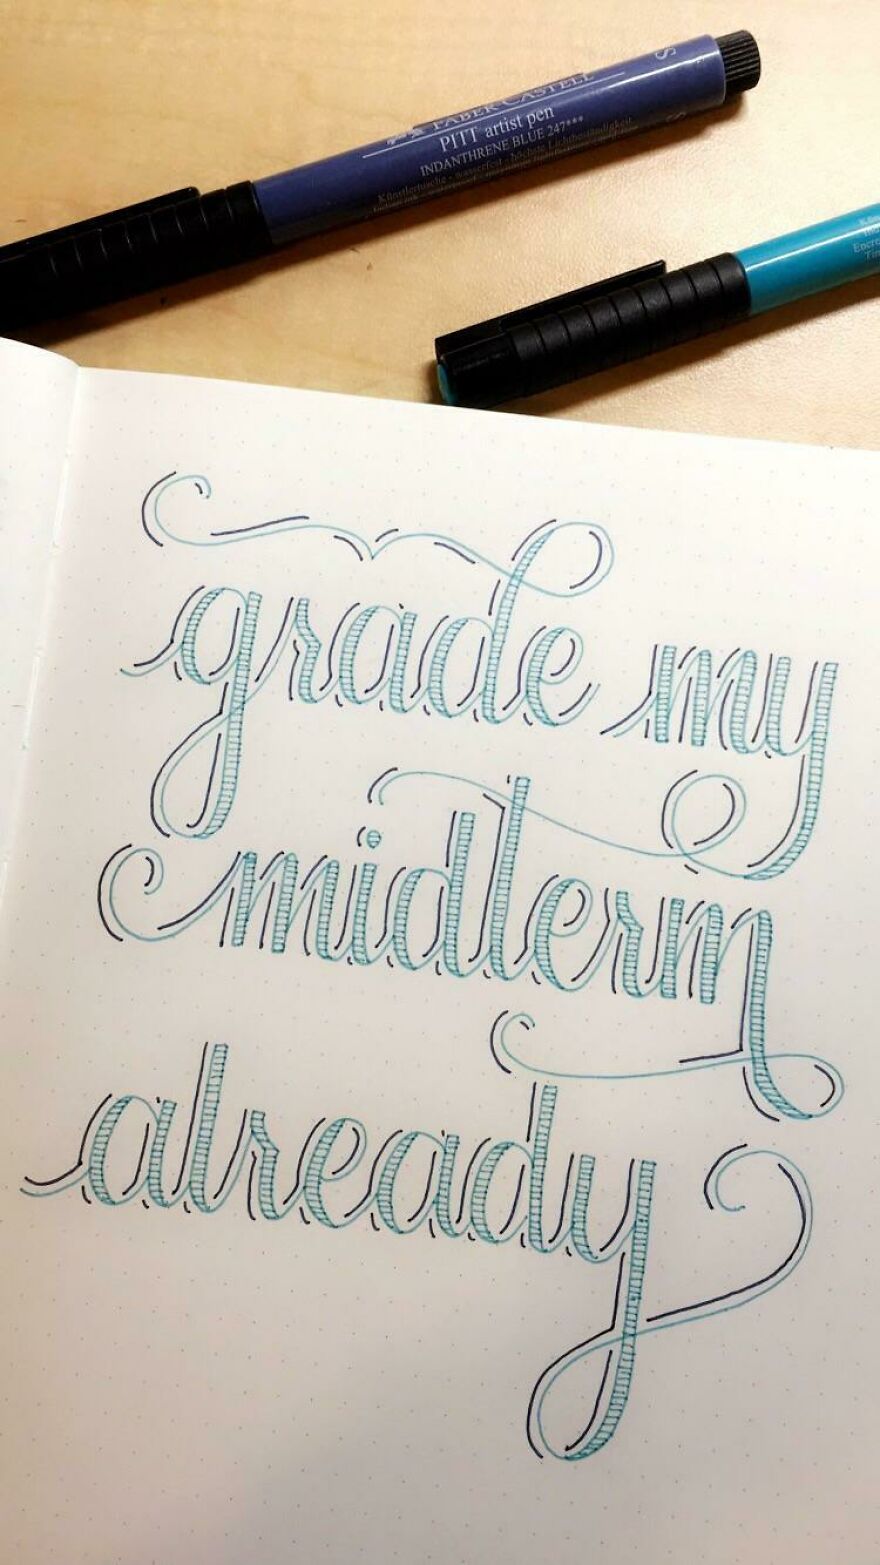 FABER-CASTELL
PITT artist pen
INDANTHRENE BLUE 247***
Künstlertusche - wasserfest - höchste Lichtbeständigkeit
S
grade my
midterm
already